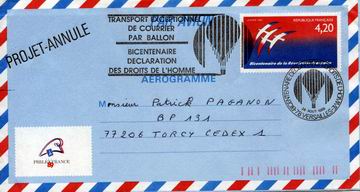 TRANSPORT EXCEPTIONNEL
DE COURRIER
PAR BALLON
BICENTENAIRE
DECLARATION
DES DROITS DE L'HOMME
PROJET-ANNULE
PAR AVION
AÉROGRAMME
RÉPUBLIQUE FRANÇAISE
4,20
Bicentenaire de la Révolution française
Monsieur Patrick PAGANON
BP 131
77206 TORCY CEDEX 1
PHILEXFRANCE
89